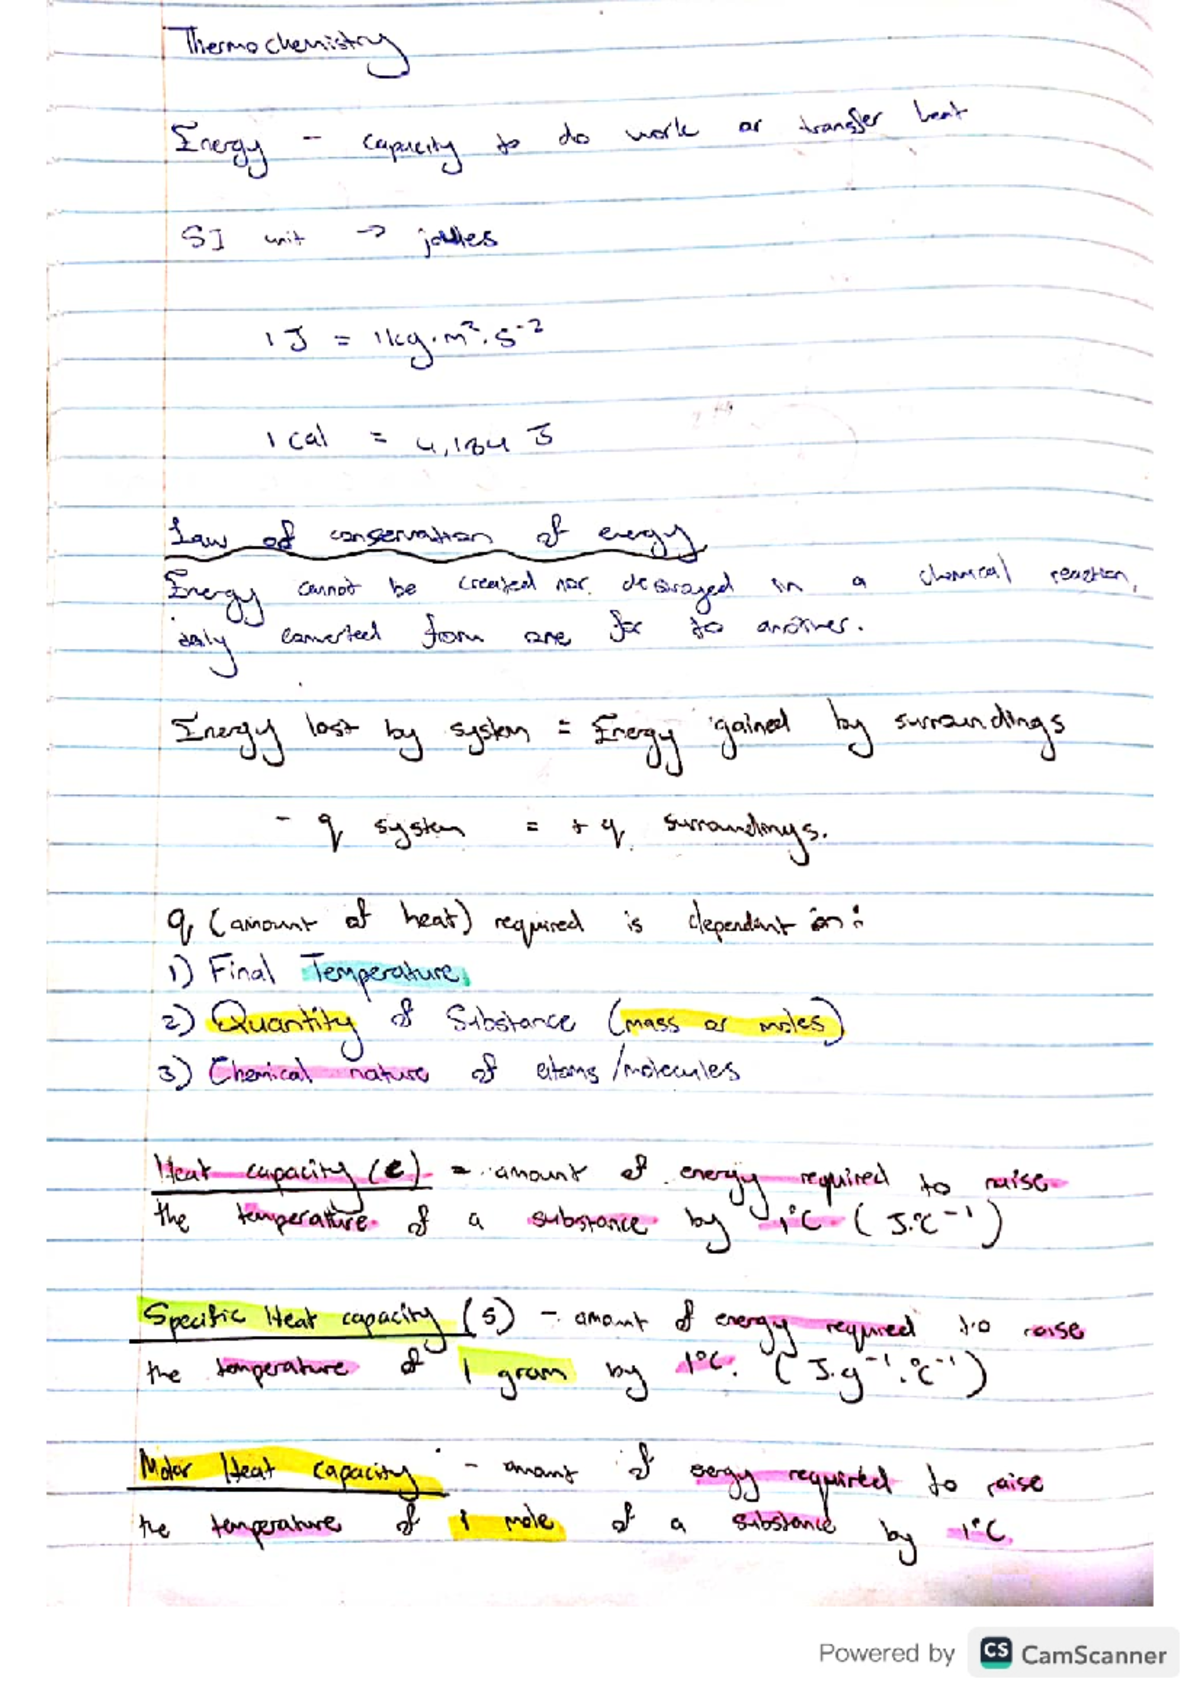 Thermochemistry
Energy - capacity to do work or transfer heat
SI unit → joules
1 J = 1kg·m²·s⁻²
1 cal = 4,184 J
Law of conservation of energy
Energy cannot be created nor destroyed in a chemical reaction,
only converted from one for to another.
Energy lost by system = Energy gained by surroundings
- q system = + q surroundings.
q (amount of heat) required is dependant on:
1) Final Temperature,
2) Quantity of Substance (mass or moles)
3) Chemical nature of atoms/molecules
Heat capacity (c) = amount of energy required to raise
the temperature of a substance by 1°C (J.°C⁻¹)
Specific Heat capacity (s) - amount of energy required to raise
the temperature of 1 gram by 1°C. (J.g⁻¹.°C⁻¹)
Molar Heat capacity - amount of energy required to raise
the temperature of 1 mole of a substance by 1°C
Powered by CS CamScanner